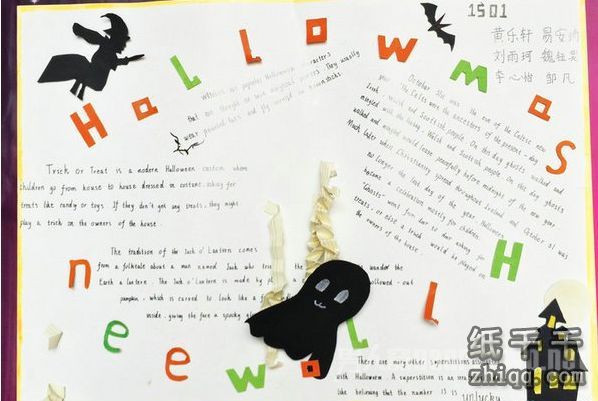 1501
黄乐轩 易安
刘雨珂 魏钰昊
李心怡 邹凡
Hallowmas
witches are popular Halloween characters
that are thought to have magical powers. They usually
wear pointed hats, and fly around on broomsticks
October 31st was the eve of the Celtic new
year. The Celts were the ancestors of the present-day
Irish, Welsh and Scottish people. On this day ghosts walked and
mingled with the living,
walked and mingled would leave peacefully before midnight of the new year
Much later when Christianity spread throughout Ireland and October 31 was
no longer the last day of the year, Halloween
became a celebration mostly for children.
"Ghosts" went from door to door asking for
treats, or else a trick would be played on
the owners of the house
Trick or Treat is a modern Halloween custom where
children go from house to house dressed in costume, asking for
treats like candy or toys. If they don't get any treats, they might
play a trick on the owners of the house.
The tradition of the Jack o' Lantern comes
from a folktale about a man named Jack who wander the
Earth a lantern. The Jack o' Lantern is made by hollowed-out
pumpkin, which is carved to look like a
inside, giving the face a spooky
There are many other superstitions
with Halloween. A superstition is an
like believing that the number 13 is unlucky
neewollaH
纸千千
zhiqq.com